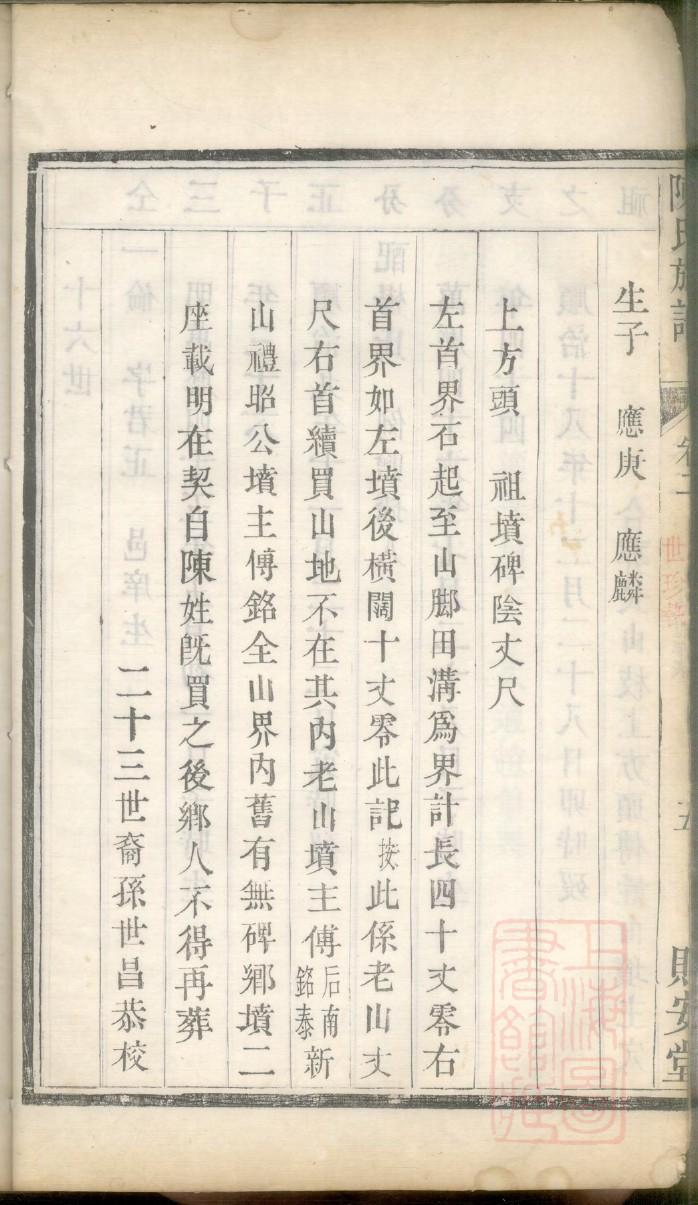 陳氏族譜 卷二 五 貽安堂
世珍堂
生子 應庚 應麟
上方頭 祖墳碑陰丈尺
左首界石起至山脚田溝爲界計長四十丈零右
首界如左墳後橫闊十丈零此記按此係老山丈
尺右首續買山地不在其內老山墳主傅后南銘泰新
山禮昭公墳主傅銘全山界內舊有無碑鄉墳二
座載明在契自陳姓旣買之後鄉人不得再葬
二十三世裔孫世昌恭校
上海圖書館藏